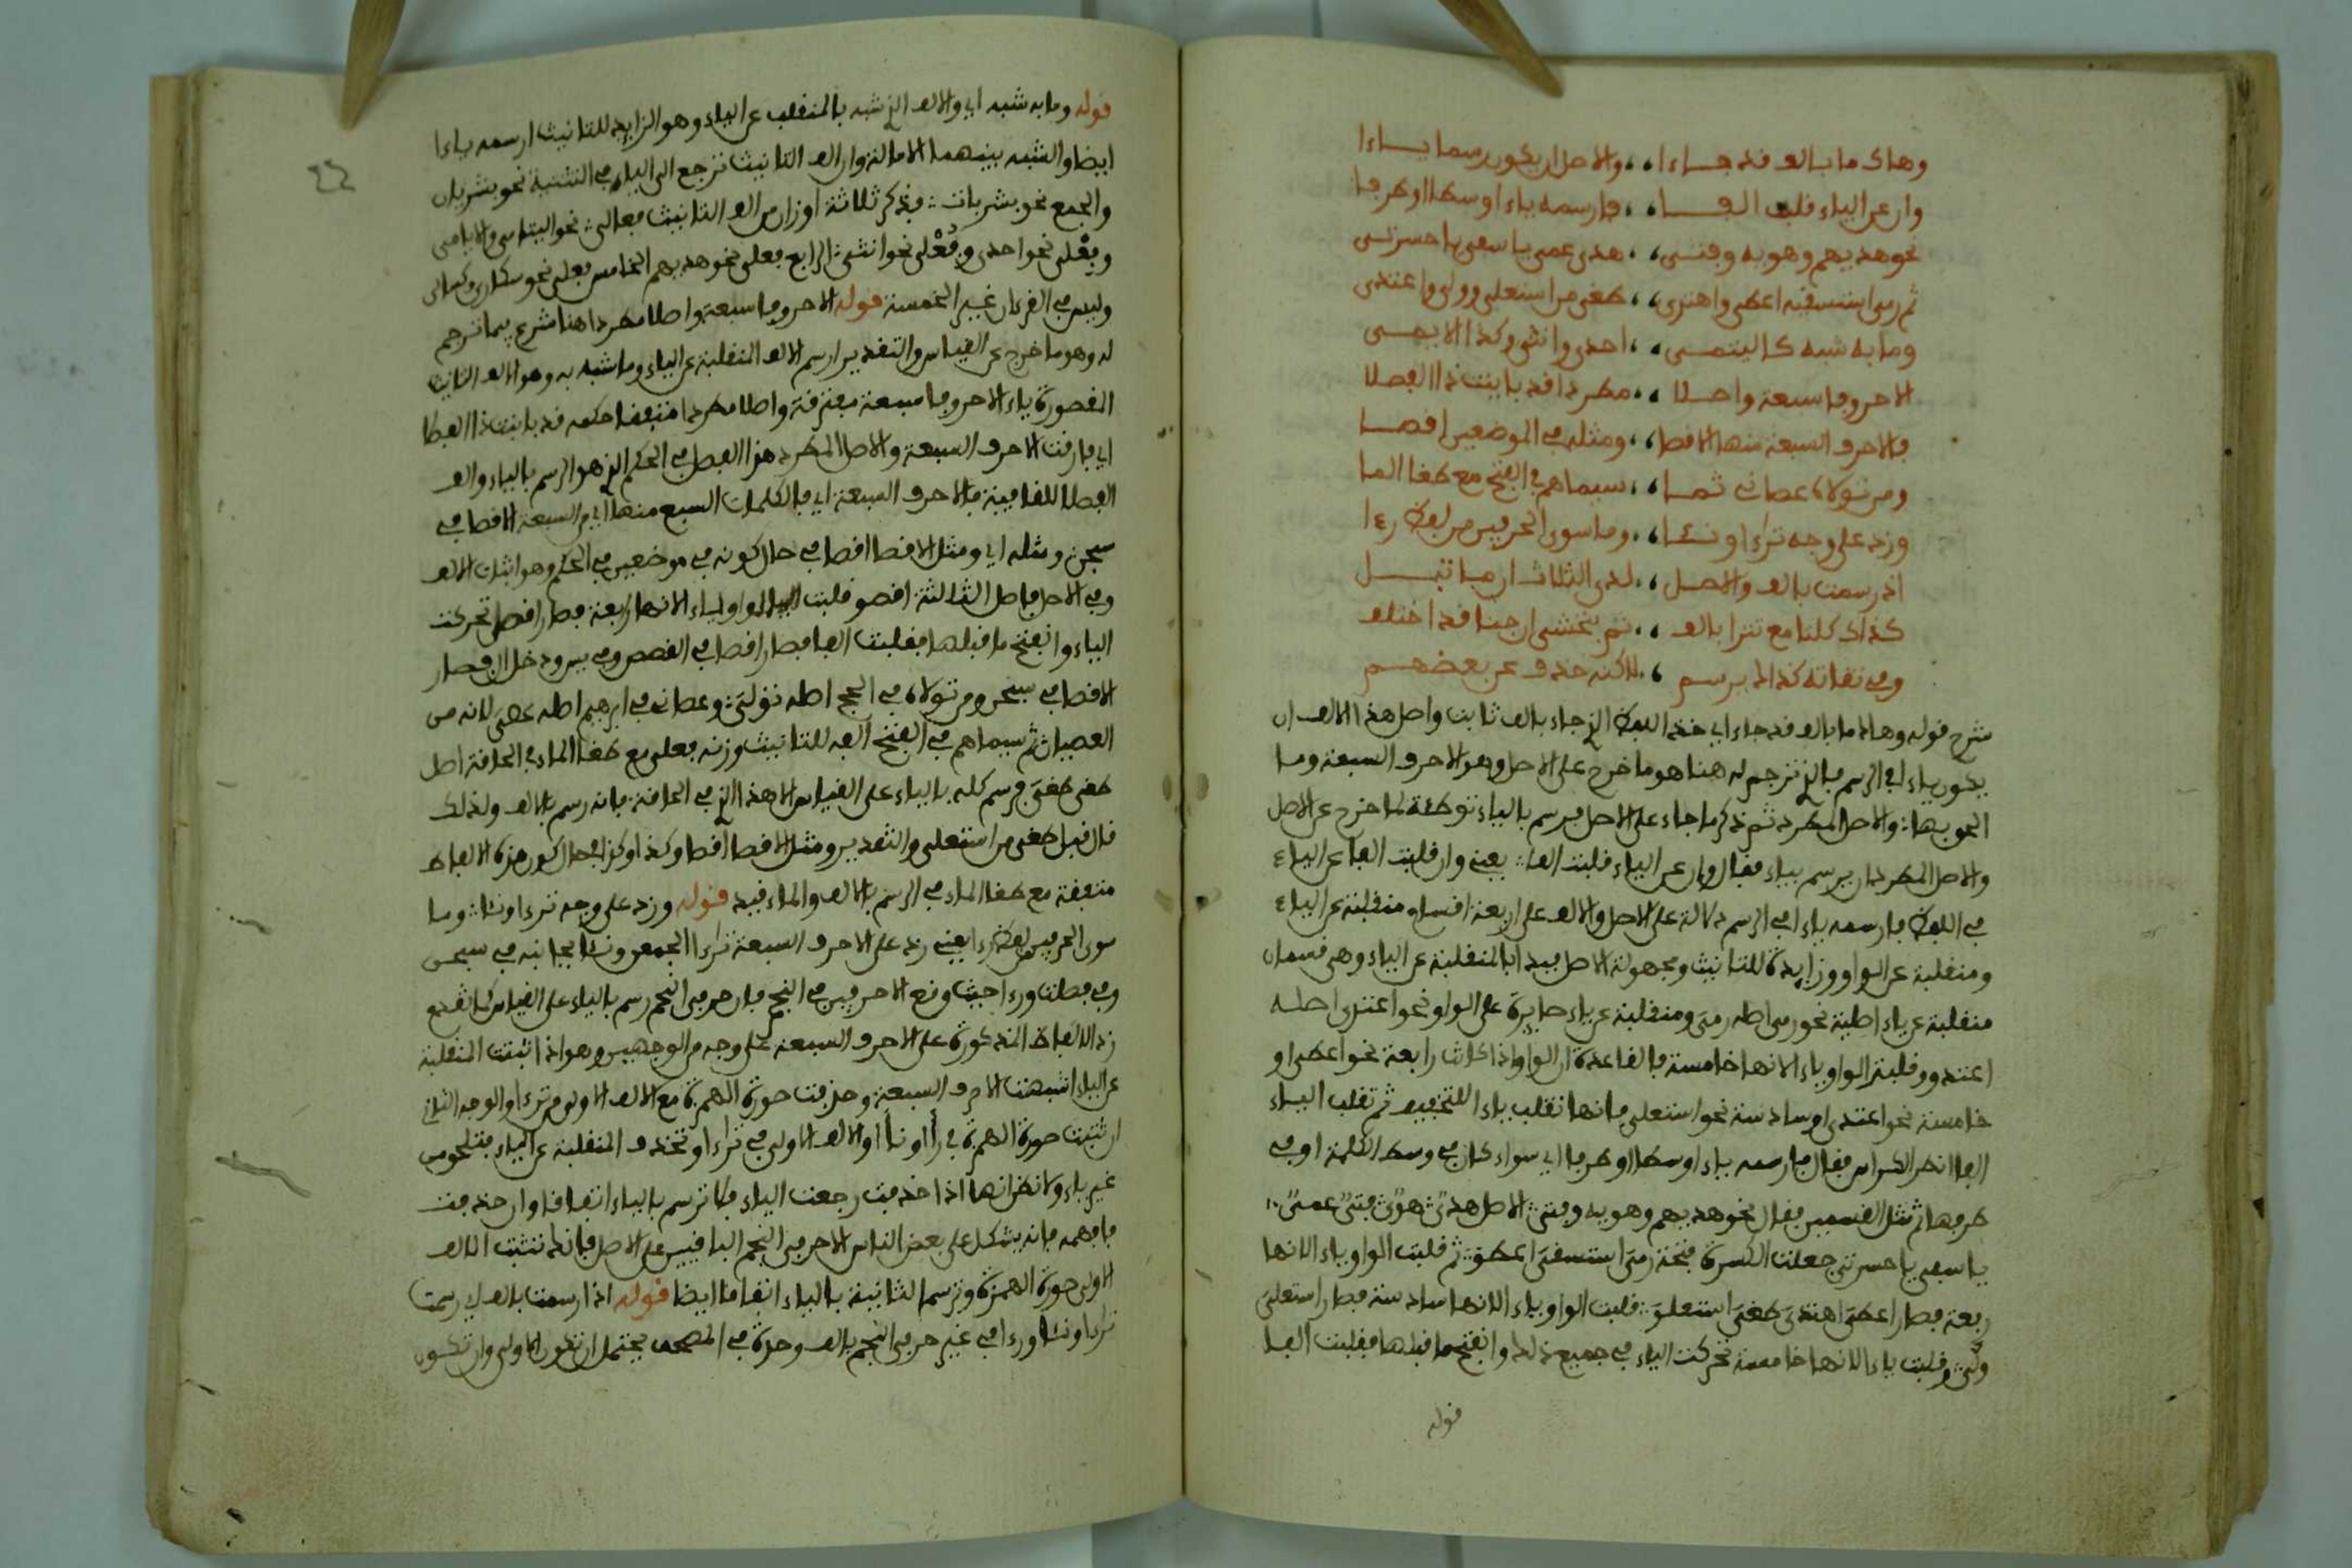 وهاك ما بالف قد جاءا والاصل ان يكون رسما ياءا
وان عن الياء قلب الفا فارسمه ياء اوسطا او طرفا
نحو هديهم وهويه وفتى هدى عمى ياسفى ياحسرتى
ثم رمى استسقيه اعطى واهتدى طغى من استعلى وولى واعتدى
وما به شبه كاليتمى احدى وانثى وكذا الايمى
الا حروفا سبعة واصلا مطردا قد باينت ذا الفصلا
فالاحرف السبعة منها الاقصا ومثله في الموضعين اقصا
ومن تولاه عصانى ثما سيماهم في الفتح مع طغا الما
وزد على وجه تراءا ونئا وما سوى الحرفين من لفظ رءا
اذ رسمت بالف والاصل لدى الثلاث ان ما تبل
كذاك كلتا مع تترا بالف ثم بخشى ان جنا قد اختلف
وفي تقاته كذا لم يرسم لاكنه حذف عن بعضهم
شرح قوله وهاك ما بالف قد جاء اي خذ اللفظ الذي جاء بالف ثابت واصل هذا الالف ان
يكون ياء في الرسم فالذي ترجم له هنا هو ما خرج على الاصل وهو الاحرف السبعة وما
الحق بها والاصل المطرد ثم ذكر ما جاء على الاصل فرسم بالياء توطئة لما خرج عن الاصل
والاصل المطرد ان يرسم بياء فقال وان عن الياء قلبت الفا يعني وان قلبت الفا عن الياء
في اللفظ فارسمه ياء في الرسم دلالة على الاصل والالف على اربعة اقسام منقلبة عن الياء
ومنقلبة عن الواو وزايدة للتانيث ومجهولة الاصل فبدا بالمنقلبة عن الياء وهي قسمان
منقلبة عن ياء اصلية نحو رمى اصله رمي ومنقلبة عن ياء صايرة على الواو نحو اعتدى اصله
اعتدو وقلبت الواو ياء لانها خامسة فالقاعدة ان الواو اذا كانت رابعة نحو اعطى او
خامسة نحو اعتدى او سادسة نحو استعلى فانها تقلب ياء للتخفيف ثم تقلب الياء
الفا انظر الكراس فقال فارسمه ياء اوسطا او طرفا اي سواء كان في وسط الكلمة او في
طرفها ثم مثل القسمين فقال نحو هديهم وهويه وفتى الاصل هدي هوي فتي عمي
ياسفى ياحسرتى جعلت الكسرة فتحة رمي استسقي اعطو ثم قلبت الواو ياء لانها
ربعة فصار اعطي اهتدي طغي استعلو قلبت الواو ياء لانها سادسة فصار استعلي
ولي وقلبت ياء لانها خامسة تحركت الياء في جميع ذلك وانفتح ما قبلها فقلبت الفا
قوله
قوله وما به شبه اي والالف الذي شبه بالمنقلب عن الياء وهو الزايد للتانيث ارسمه ياءا
ايضا والشبه بينهما الامالة وان الف التانيث ترجع الى الياء في التثنية نحو بشريان
والجمع نحو بشريات فذكر ثلاثة اوزان من الف التانيث فعالى نحو اليتامى والايامى
وفعلى نحو احدى وفعلى نحو انثى الرابع فعلى نحو الخامس فعلى نحو سكارى وكسالى
وليس في القرءان غير الخمسة قوله الا حروفا سبعة واصلا مطردا هنا شرع فيما ترجم
له وهو ما خرج عن القياس والتقدير ارسم الالف المنقلبة عن الياء وما شبه به وهو الف التانيث
المقصورة ياء الا حروفا سبعة مفترقة واصلا مطردا متفقا حكمه قد باينت ذا الفصلا
اي فارقت الاحرف السبعة والاصل المطرد هذا الفصل في الحكم الذي هو الرسم بالياء والف
الفصلا للقافية فالاحرف السبعة اي فالكلمات السبع منها اي من السبعة الاقصا في
سبحن ومثله اي ومثل الاقصا اقصا في حال كونه في موضعين في الحكم وهو اثبات الالف
وفي الاصل فاصل الثلاثة اقصو قلبت الواو ياء لانها رابعة فصار اقصي تحركت
الياء وانفتح ما قبلها فقلبت الفا فصار اقصا في القصص وفي يس ودخل ال فصار
الاقصا في سبحن ومن تولاه في الحج اصله تولي وعصانى في ابرهيم اصله عصي لانه من
العصيان ثم سيماهم في الفتح الفه للتانيث وزنه فعلى مع طغا الماء في الحاقة اصل
طغى طغي فرسم كله بالياء على القياس الا هذا الذي في الحاقة فانه رسم بالالف ولذلك
قال قبل طغى من استعلى والتقدير ومثل الاقصا اقصا وكذا وكذا في حال كون هذه الالفاظ
متفقة مع طغا الماء في الرسم بالالف والماء قيد قوله وزد على وجه تراءا ونئا وما
سوى الحرفين من لفظ رءا يعني زد على الاحرف السبعة تراءا الجمعن ونئا بجانبه في سبحن
وفي فصلت ورءا حيث وقع الا حرفين في النجم فان حرفي النجم رسم بالياء على القياس كما تقدم
زد الالفاظ المذكورة على الاحرف السبعة على وجه من الوجهين وهو اذا اثبتت المنقلبة
عن الياء اشبهت الاحرف السبعة وحذفت صورة الهمزة مع الالف الاولى من تراءا والوجه الثاني
ان تثبت صورة الهمزة في رأا ونأا والالف الاولى في تراءا وتحذف المنقلبة عن الياء فتلحق من
غير ياء ولا نظر انها اذا حذفت رجعت الياء فلا ترسم بالياء اتفاقا وان حذفت
فافهمه فانه يشكل على بعض الناس الا حرفي النجم الباقيين على الاصل فانه تثبت الالف
الاولى صورة الهمزة وترسم الثانية بالياء اتفاقا ايضا قوله اذ رسمت بالف اي رسمت
تراءا ونئا ورءا في غير حرفي النجم بالف وحدة في المصحف يحتمل ان تكون الاولى وان تكون